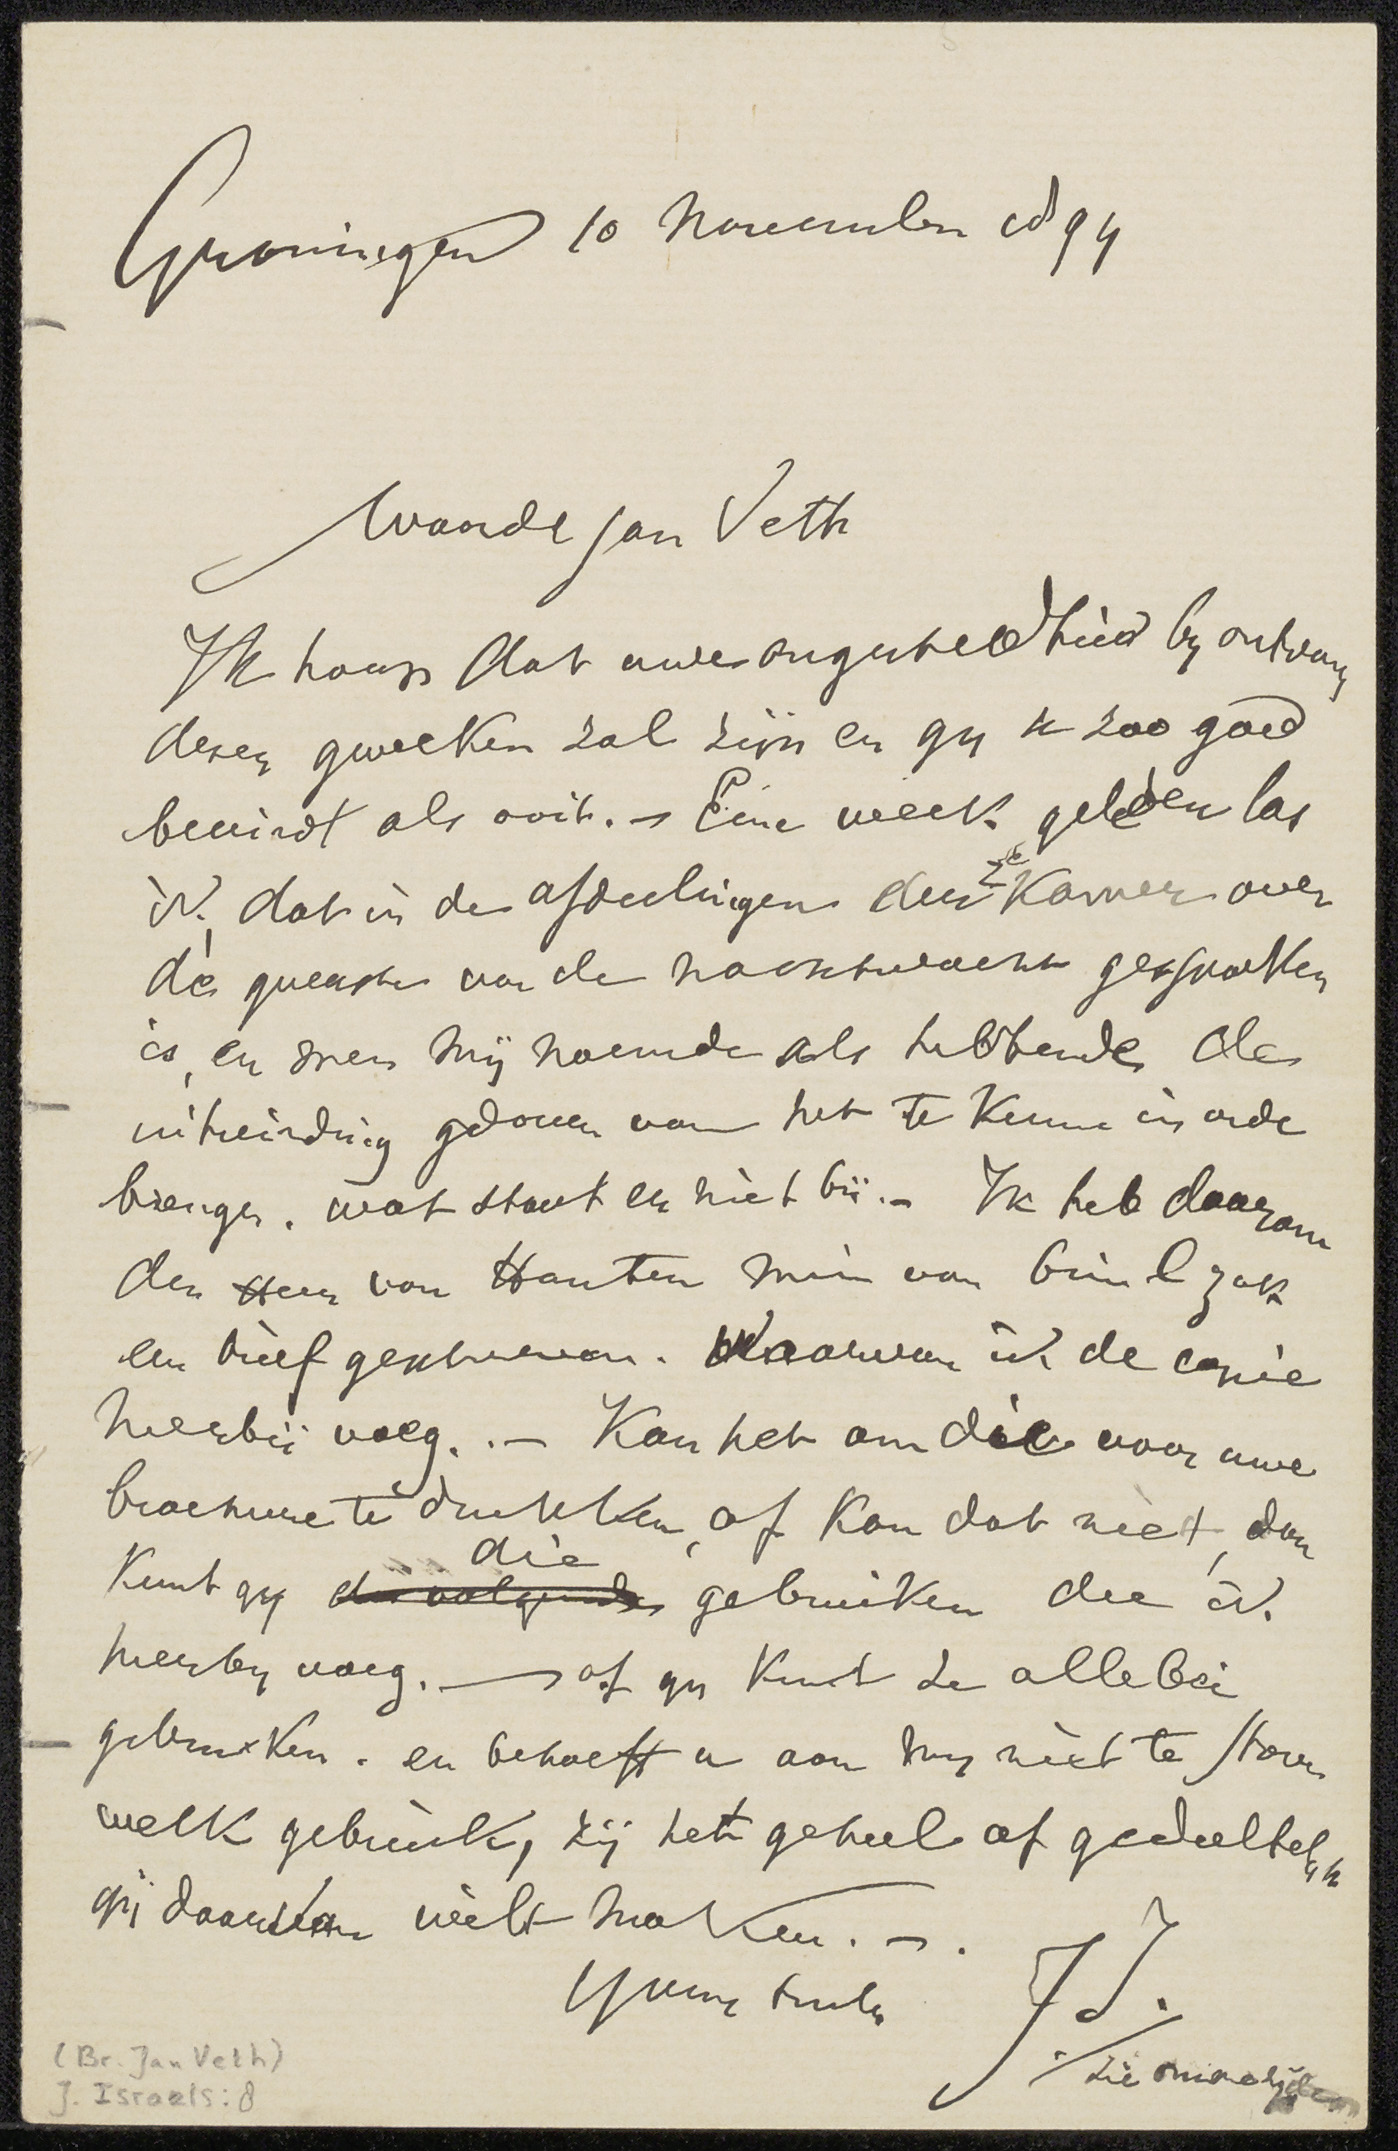 Groningen 10 November 1894
Waarde Jan Veth
Ik hoop dat uwe ongesteldheid by ontvang
dezer geweeken zal zijn en gy u zoo goed
bevindt als ooit. – Eene week geleden las
ik, dat in de afdeelingen der 2e Kamer over
de quaestie van de nachtwacht gesproken
is, en men mij noemde als hebbende de
uitvinding gedaan van het te kunnen in orde
brengen. wat staat er niet bij. – Ik heb daarom
den Heer van Houten min van binl zak
een brief geschreven. Waarvan ik de copie
hierbij voeg. – Kan het om die voor uwe
brochure te drukken, of kan dat niet, dan
kunt gy die
de volgende gebruiken die ik
hierby voeg. — of gy kunt ze allebei
gebruiken. en behoeft u aan my niet te storen
welk gebruik, zij het geheel of gedeeltelyk
gij daarvan wilt maken. –.
Yours truly J J.
zie ommezijde
(Br. Jan Veth)
J. Israels: 8